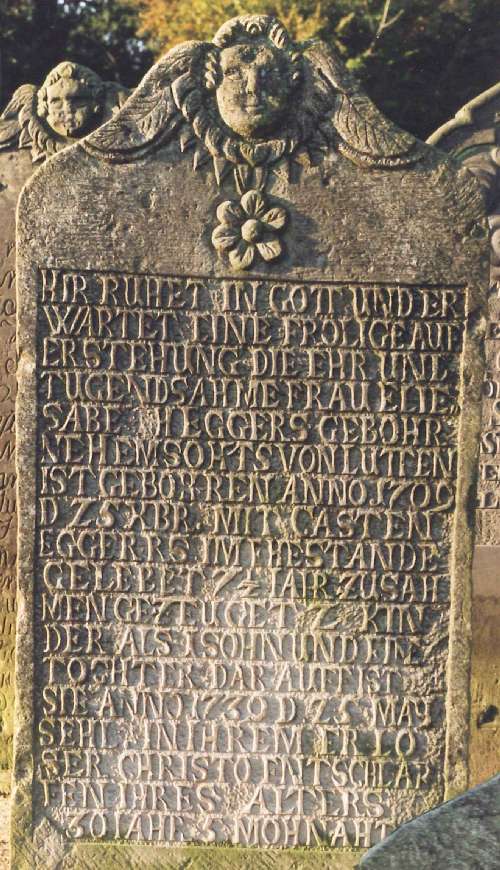 HIR RUHET IN GOTT UND ER
WARTET EINE FROLIGE AUF
ERSTEHUNG DIE EHR UND
TUGENDSAHME FRAU ELIE
SABE HEGGERS GEBOHR
NEHEMSOHTS VON LUTTEN
IST GEBOHREN ANNO 1709
D 25 XBR MIT CASTEN
EGGERRS IM EHESTANDE
GELEBET 7½ IAIR ZUSAH
MEN GEZEUGET 2 KIN
DER ALS 1 SOHN UND EINE
TOCHTER DARAUFF IST
SIE ANNO 1739 D 25 MAY
SEHL IN IHREM ERLO
SER CHRISTO ENTSCHLAF
FEN IHRES ALTERS
30 IAHR 5 MOHNAHT